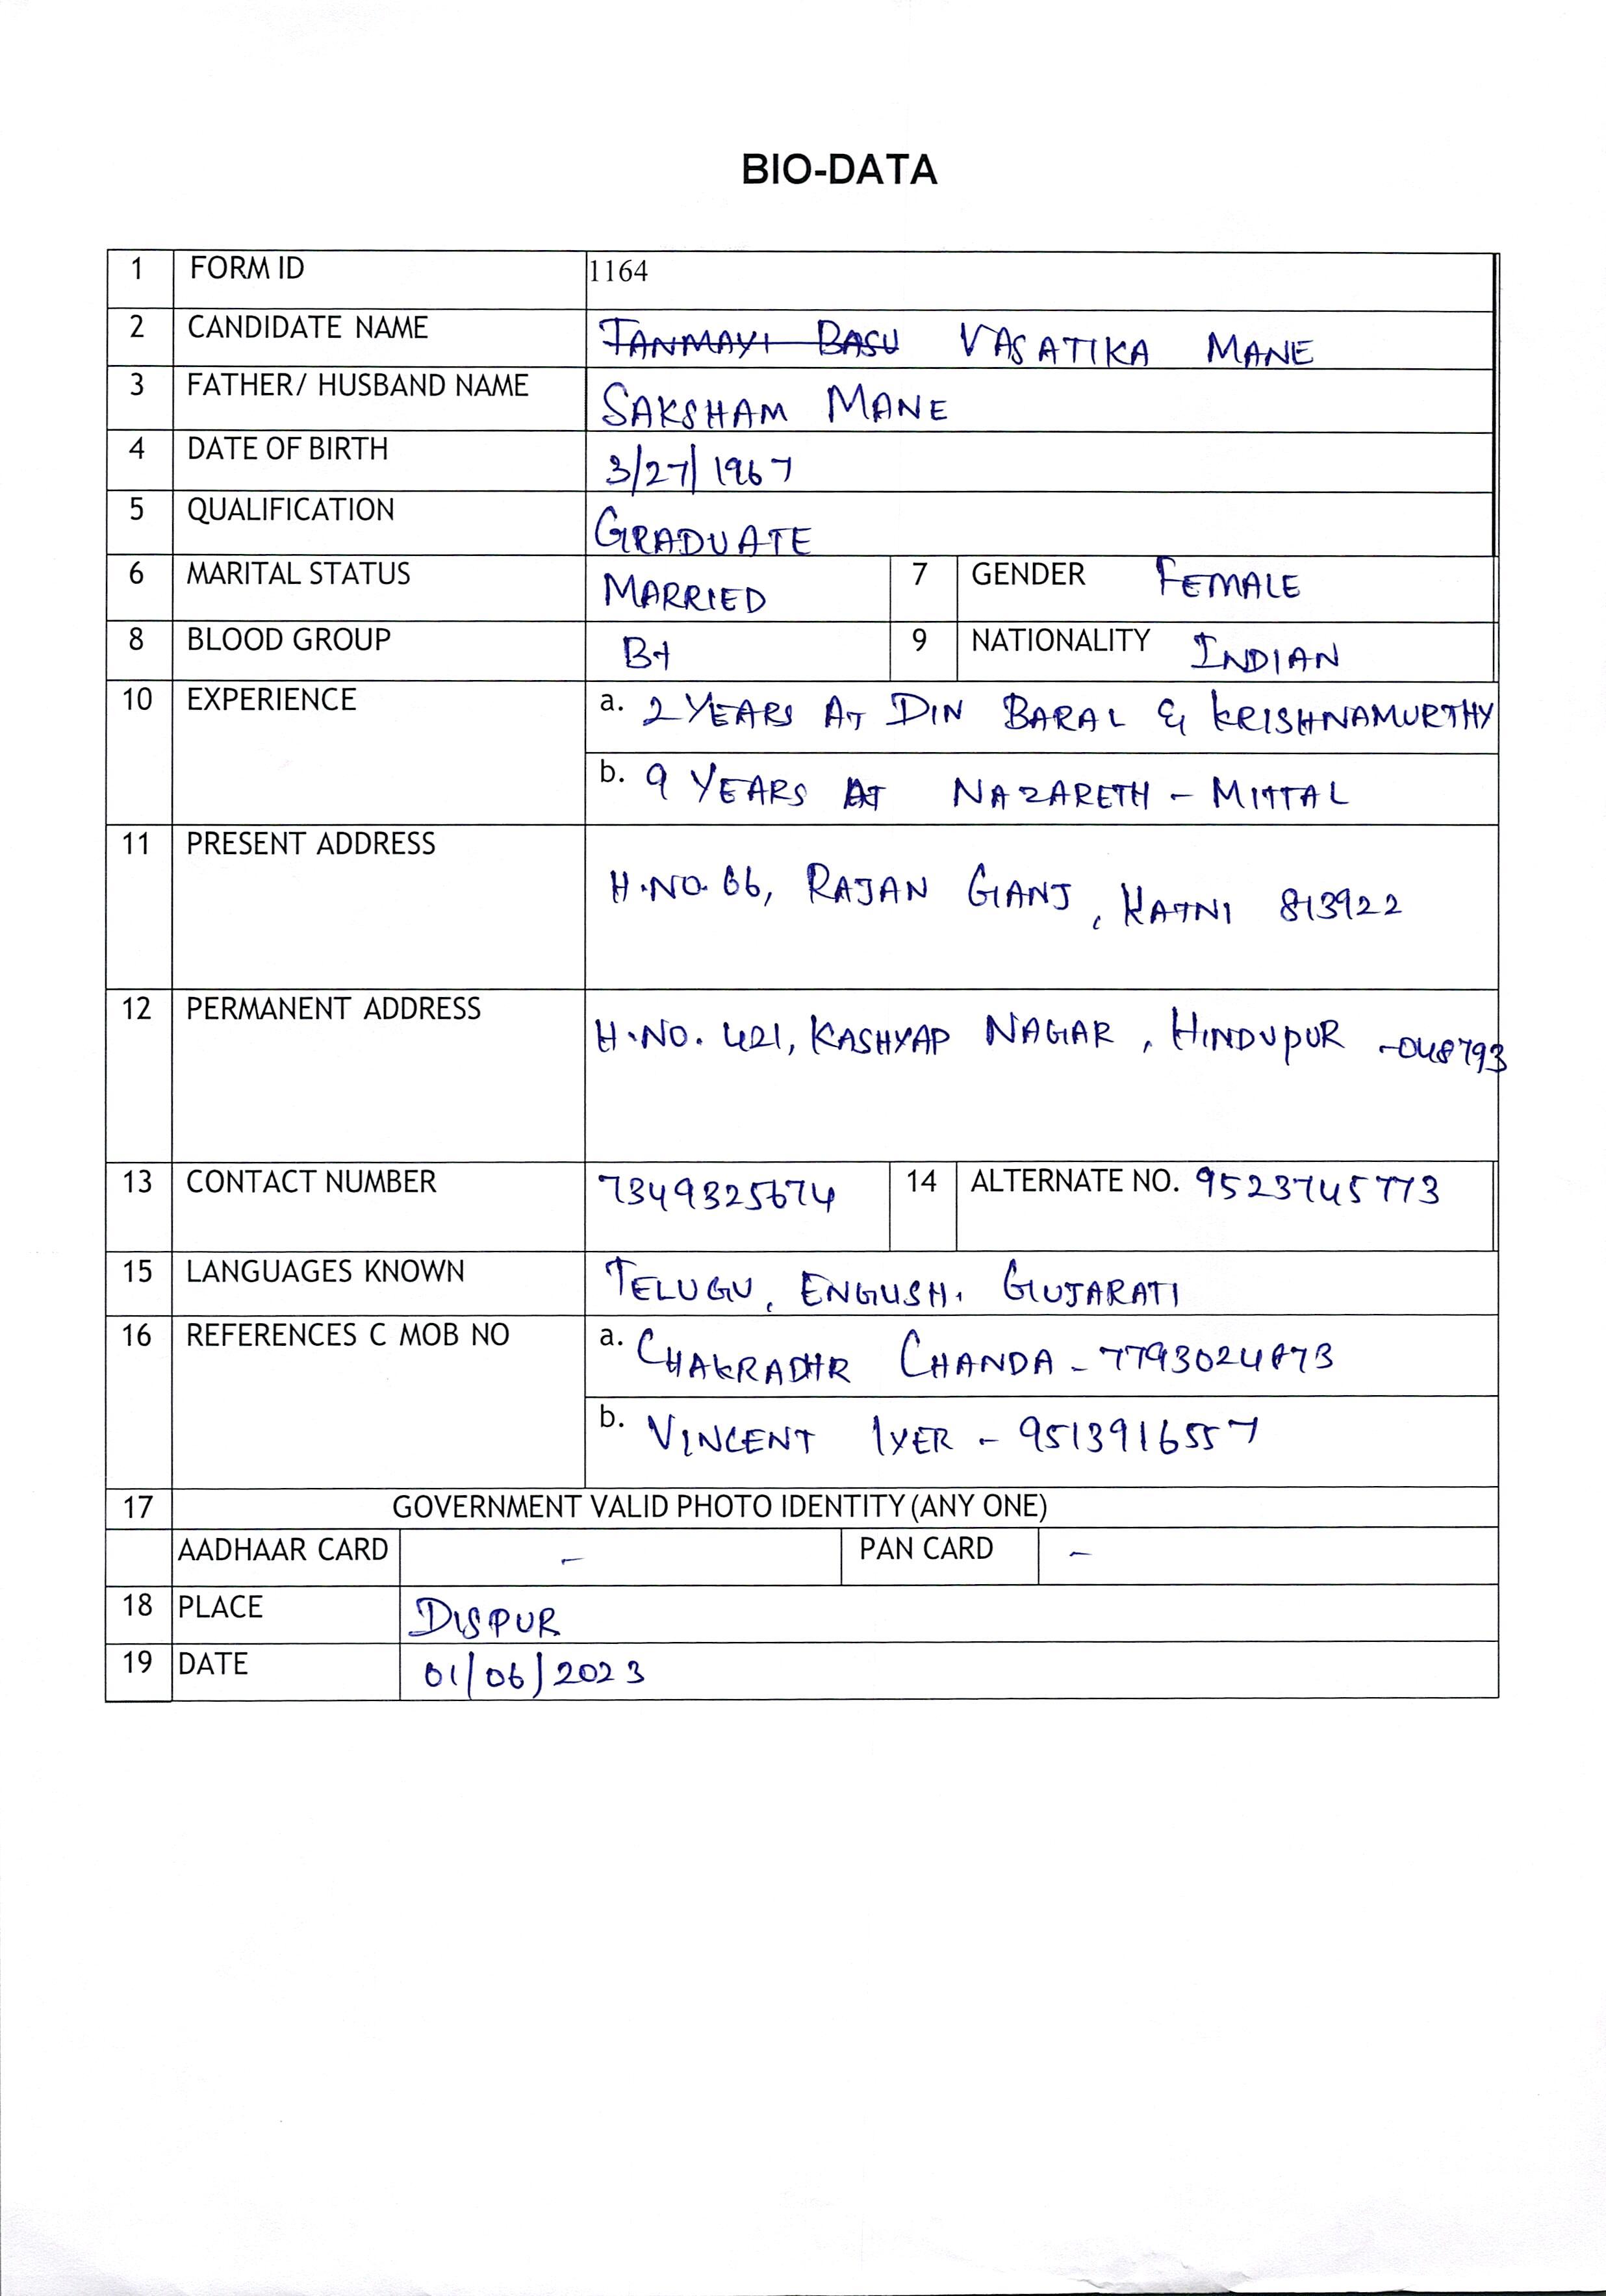 BIO-DATA
1 FORM ID 1164
2 CANDIDATE NAME TANMAYI BASU VASATIKA MANE
3 FATHER/ HUSBAND NAME SAKSHAM MANE
4 DATE OF BIRTH 3/27/1967
5 QUALIFICATION GRADUATE
6 MARITAL STATUS MARRIED 7 GENDER FEMALE
8 BLOOD GROUP B+ 9 NATIONALITY INDIAN
10 EXPERIENCE a. 2 YEARS AT DIN BARAL & KRISHNAMURTHY
b. 9 YEARS AT NAZARETH - MITTAL
11 PRESENT ADDRESS H.NO. 66, RAJAN GANJ, KATNI 813922
12 PERMANENT ADDRESS H.NO. 421, KASHYAP NAGAR, HINDUPUR -048793
13 CONTACT NUMBER 7349325674 14 ALTERNATE NO. 9523745773
15 LANGUAGES KNOWN TELUGU, ENGLISH, GUJARATI
16 REFERENCES C MOB NO a. CHAKRADHR CHANDA -
b. VINCENT IYER - 9513916557
17 GOVERNMENT VALID PHOTO IDENTITY (ANY ONE)
AADHAAR CARD - PAN CARD -
18 PLACE DISPUR
19 DATE 01/06/2023